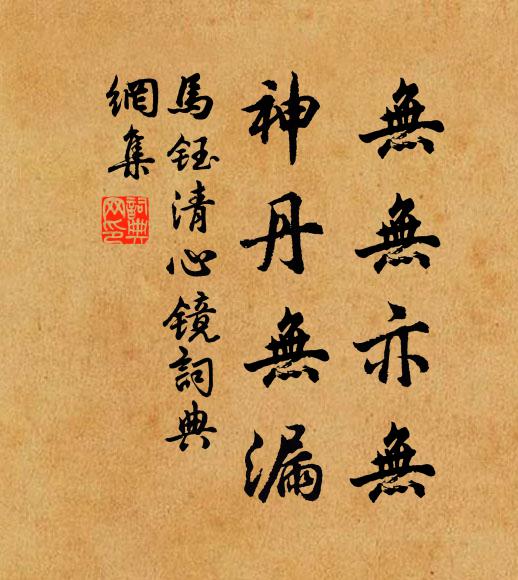 無無亦無
神丹無漏
馬鈺清心鏡詞典
網集
詞典网印